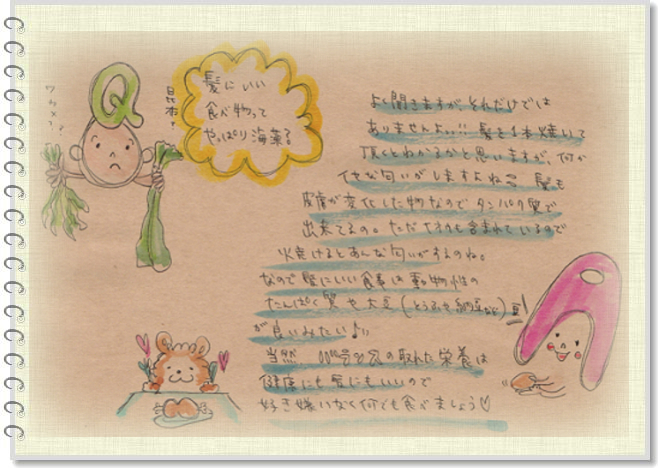 Q
ワカメ?
昆布?
髪にいい
食べ物って
やっぱり海藻？
よく聞きますが、それだけでは
ありませんよ…!! 髪を1本焼いて
頂くとわかるかと思いますが、何か
イヤな匂いがしますよね 髪も
皮膚が変化した物なので タンパク質で
出来てるの。ただ も含まれているので
火焼けるとあんな匂いがするのね。
なので髪にいい食事は動物性の
たんぱく質や大豆(とうふや納豆など)
が良いみたい♪
当然 の取れた栄養は
健康にも髪にもいいので
好き嫌いなく何でも食べましょう♡
A